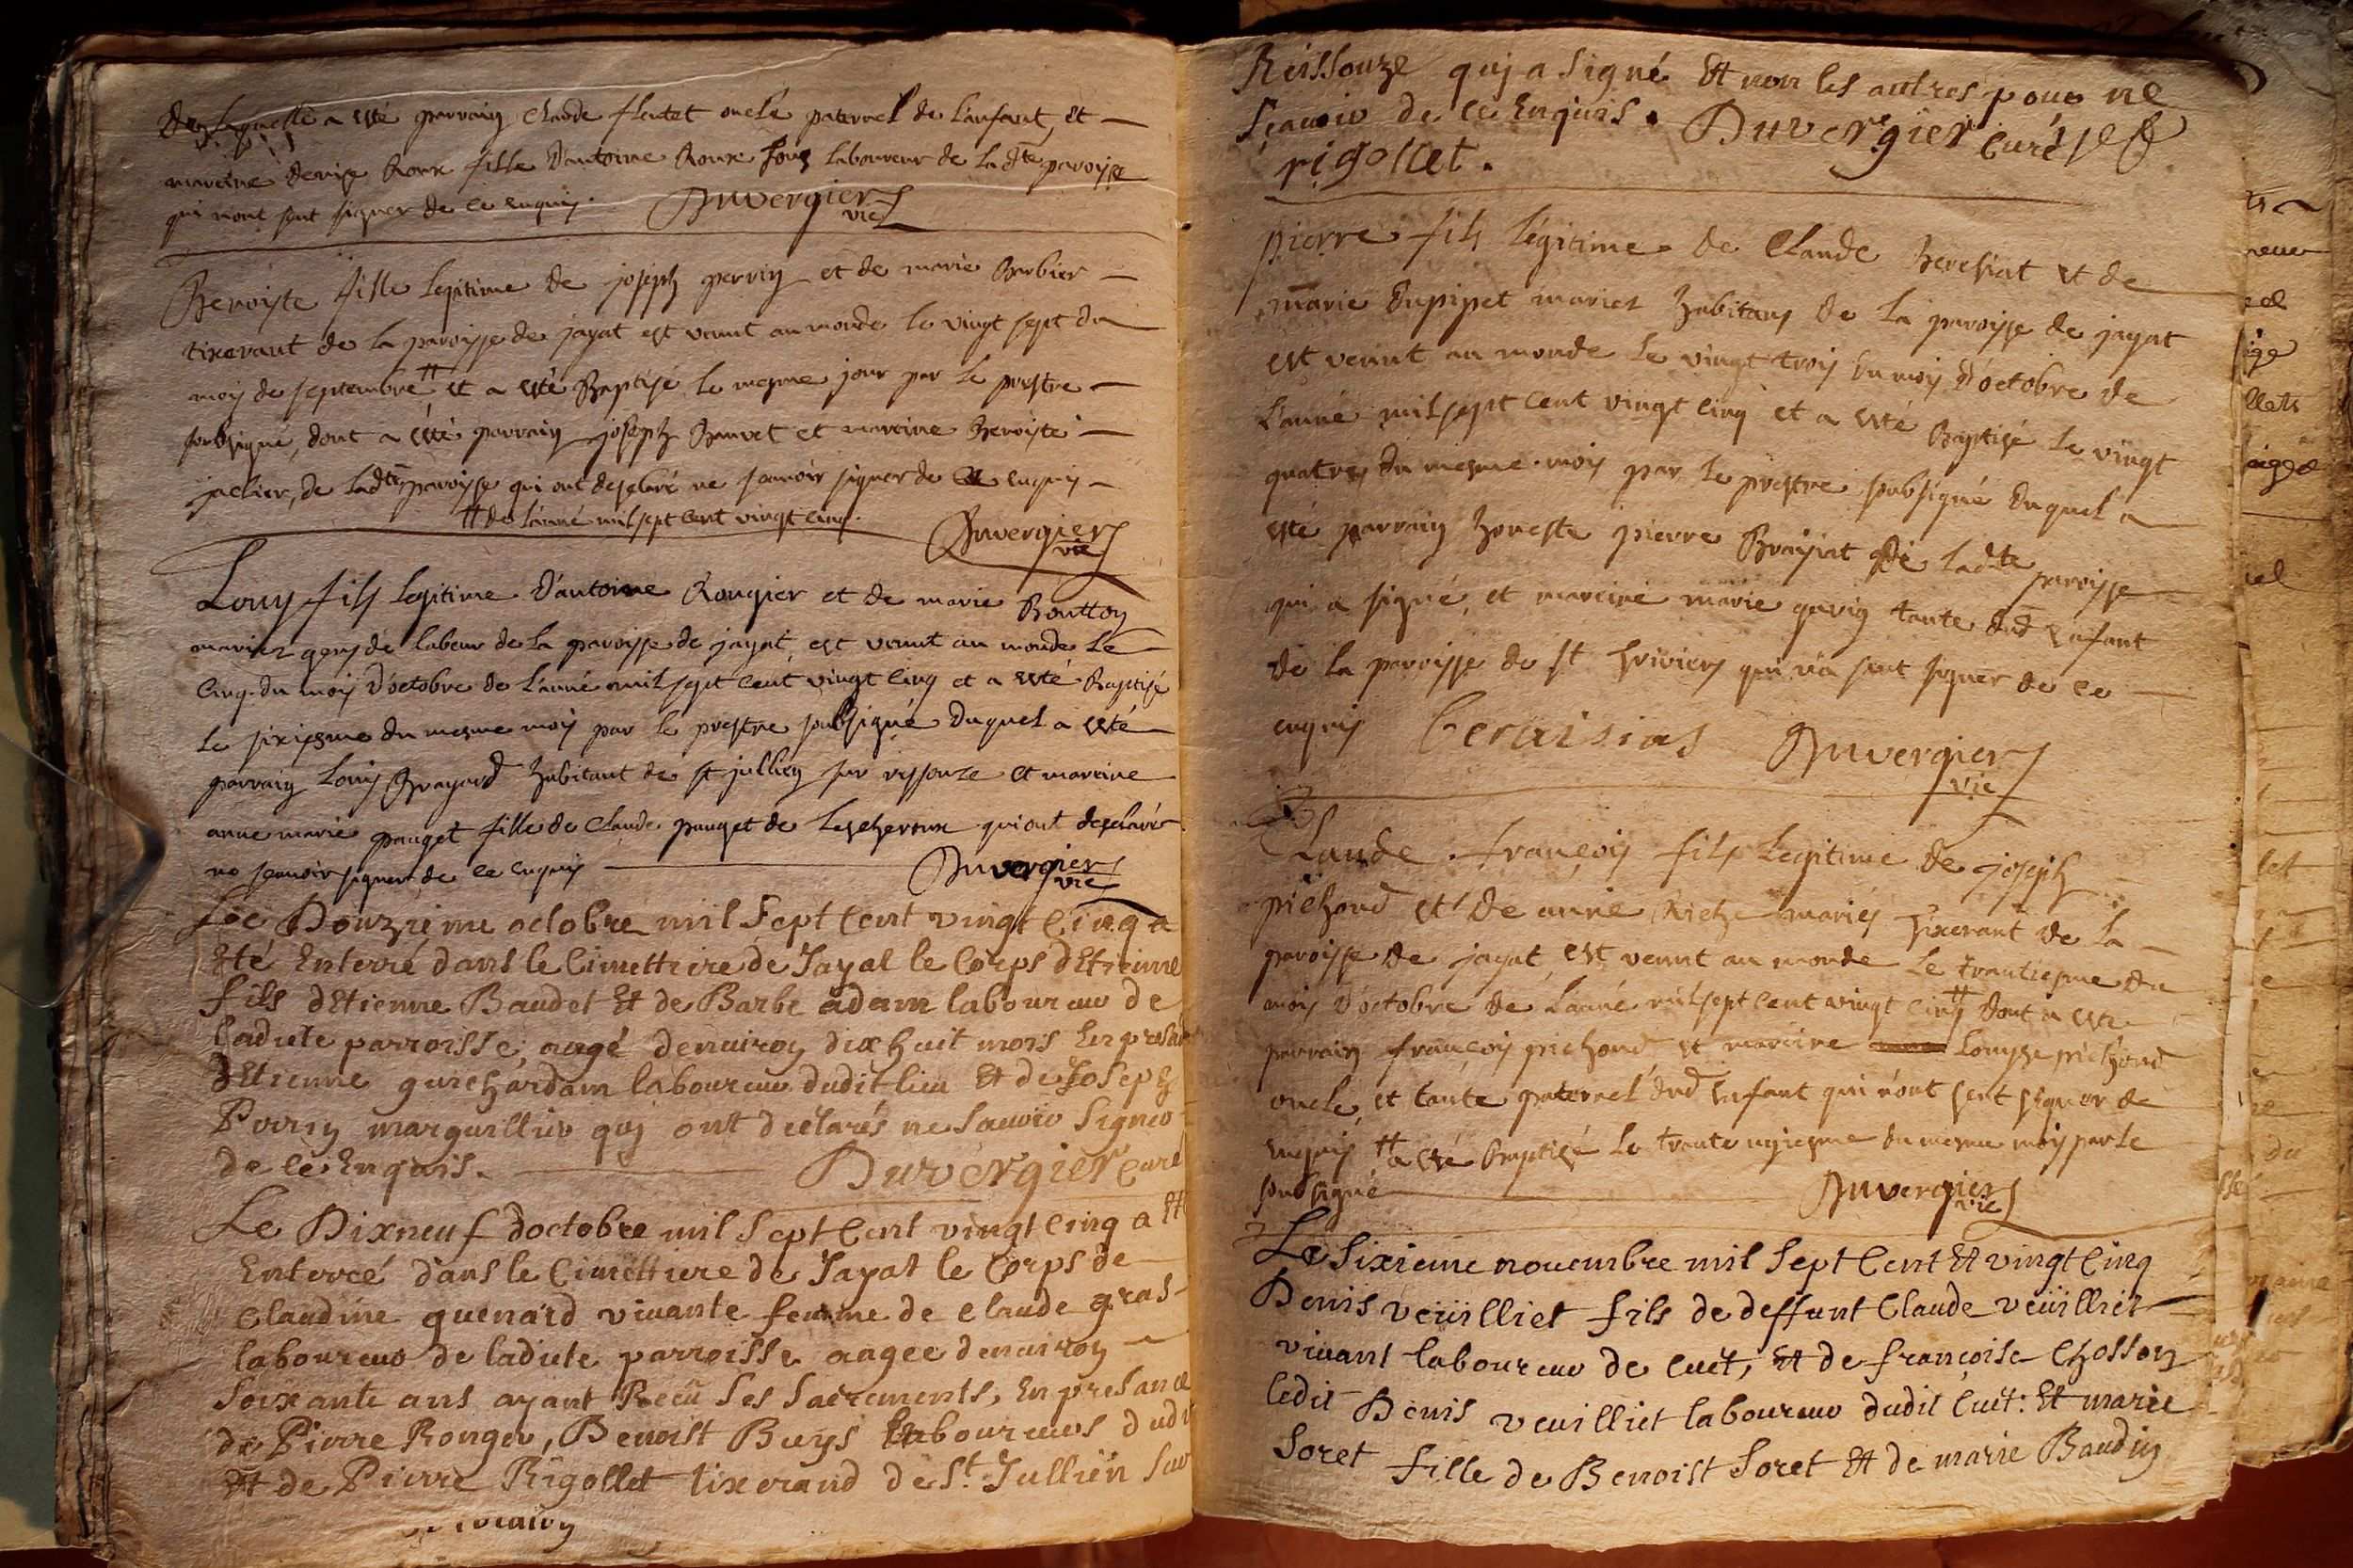 De laquelle a esté parrain Claude flutet oncle paternel de L'anfant, et
mareine denise Roux fille D'antoine Roux laboureur de la dte paroisse
qui n'ont sçut signer de ce enquis. Duvergier vic
Benoiste fille legitime de joseph perrin et de marie Barbier
tixerant de la paroisse de jayat est venut au monde le vingt sept du
mois de septembre # et a esté Baptisé le mesme jour par le prestre
soubsigné, dont a esté parrain joseph Bauvet et mareine Benoiste
jaclier, de ladte paroisse qui ont desclaré ne scavoir signer de ce enquis
# de L'anné mil sept cent vingt cinq. Duvergier vic
Louys fils legitime D'antoine Rougier et de marie Boutton
mariez gens de labeur de la paroisse de jayat, est venut au monde Le
Cinq du mois D'octobre de L'anné mil sept cent vingt cinq et a esté Baptisé
le sixiesme du mesme mois par le prestre soubsigné Duquel a esté
parrain Louis Brayard habitant de st jullien sur ryssouze et mareine
anne marie pauget fille de Claude pauget de Lescheroux qui ont desclaré
ne scavoir signer de ce enquis Duvergier vic
Le Douzieme octobre mil Sept Cent vingt Cinq a
Eté Enterré dans le Cimettiere de Jayat le Corps dEtienne
fils dEtienne Baudet Et de Barbe adam laboureur de
ladicte parroisse, aagé denuiron dix huit mois En presan
dEtienne gurchardam laboureur dudit lieu Et de Joseph
Perrin marguillier quj ont déclarés ne Sauoir Signer
de ce Enquis. Duvergier Curé
Le Dixneuf doctobre mil Sept Cent vingt Cinq a Eté
Enterré dans le Cimettiere de Jayat le Corps de
Claudine guenard viuante femme de Claude gras
laboureur de ladicte parroisse aagee denuiron
Soixante ans ayant Recu Ses Sacrements, En presance
de Pierre Ronger, Benoist Buys laboureurs dudit
Et de Pierre Rigollet tixerand de St. Jullien Sur
Reissouze quj a Signé Et non les autres pour ne
Sçauoir de ce Enquis. Duvergier Curé
rigollet.
pierre fils legitime de Claude Heresiat et de
marie Dupipet mariez habitans de la paroisse de jayat
est venut au monde le vingt trois du mois D'octobre de
L'anné mil sept cent vingt cinq et a esté Baptisé le vingt
quatre du mesme mois par le prestre soubsigné Duquel a
esté parrain honeste pierre Braisiat de ladte paroisse
qui a signé, et mareine marie gavin tante dud Enfant
de la paroisse de st Triviers qui n'a sçut signer de ce
enquis Beraisias Duvergier vic
Claude françois fils Legitime de joseph
pichond et de anne Riche mariés tixerant de la
paroisse de jayat, est venut au monde le trantiesme du
mois D'octobre de L'anné mil sept cent vingt cinq # dont a esté
parrain françois pichond et mareine Louyse pichond
oncle, et tante paternel dud Enfant qui n'ont sçut signer de
enquis # a esté Baptisé le trante unjesme du mesme mois par le
soubsigné Duvergier vic
Le Sixieme nouembre mil Sept Cent Et vingt Cinq
Denis veüilliet fils de deffunt Claude veüilliet
viuant laboureur de Cuët, Et de françoise Chosson
ledit Denis veuilliet laboureur dudit Cuët: Et marie
Soret fille de Benoist Soret Et de marie Baudin